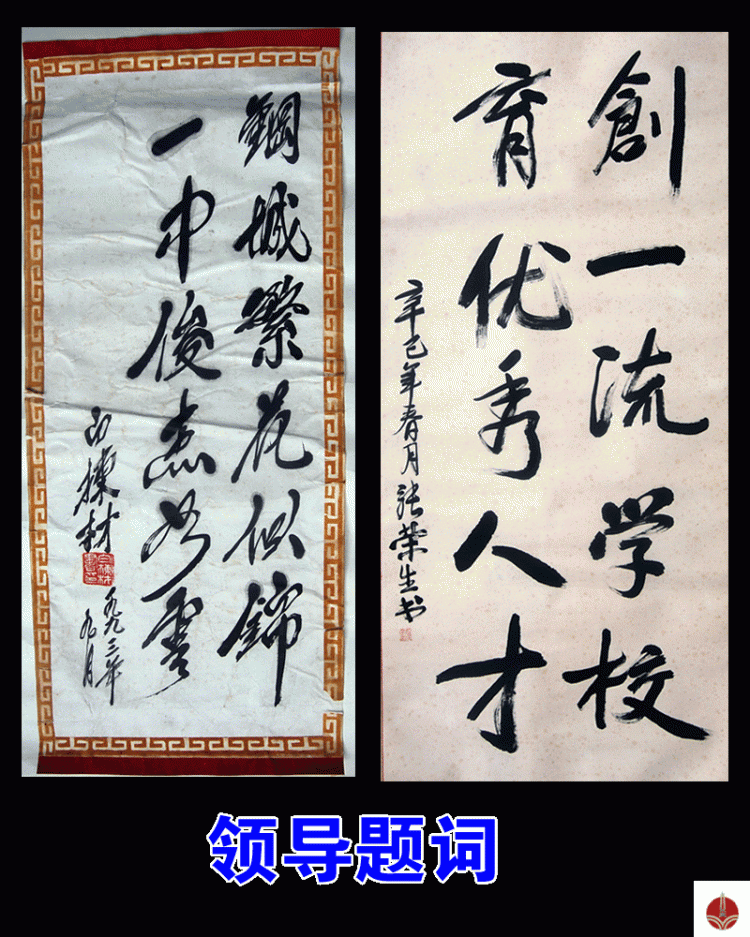 鋼城繁花似錦
一中俊杰如雲
白棟材
一九九三年
九月
創一流学校
育优秀人才
辛巳年春月张荣生书
领导题词